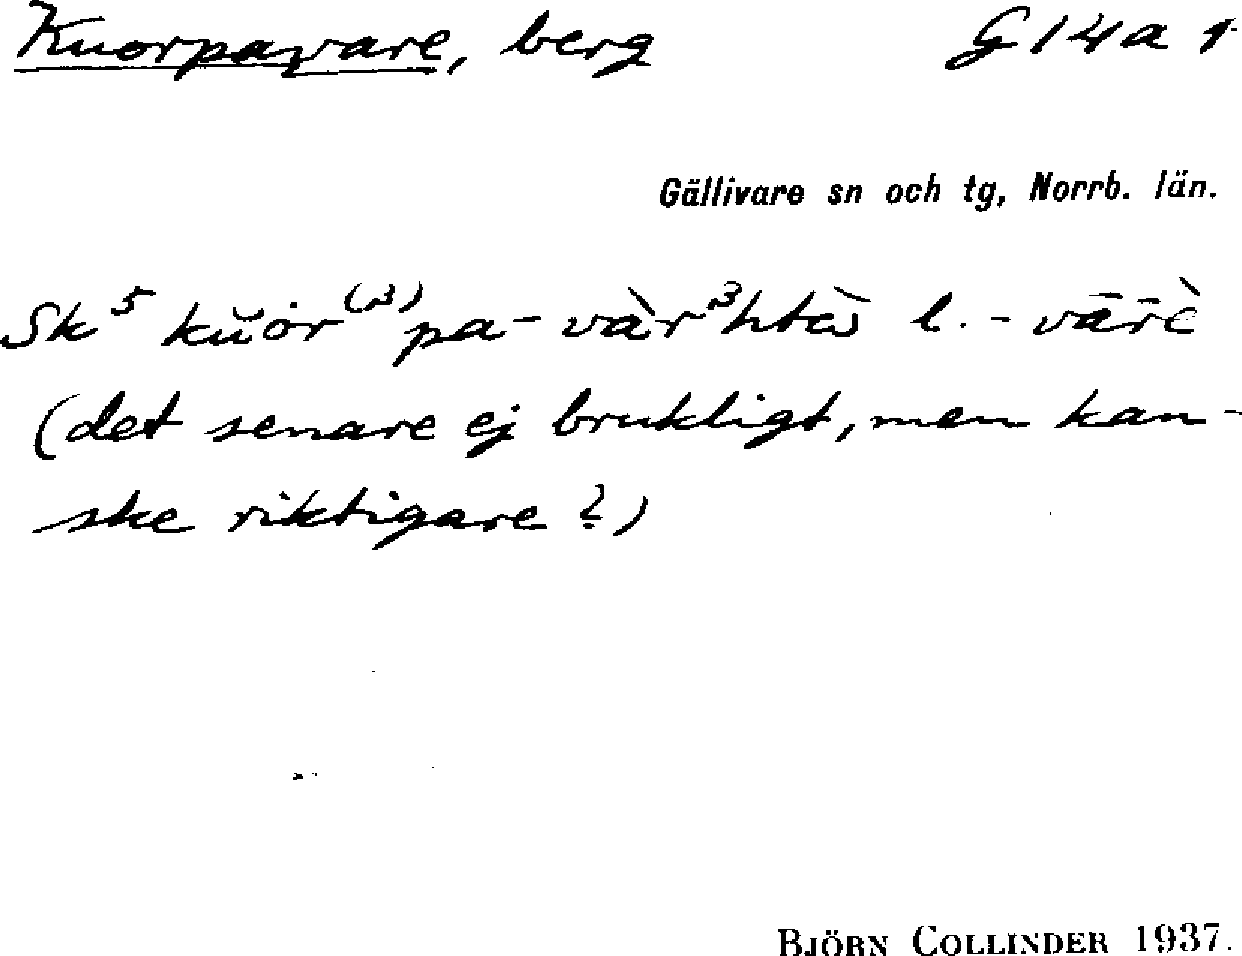 Kuorpavare, berg G14a 1
Gällivare sn och tg, Norrb. län.
Sk⁵ kŭȯr⁽³⁾pa- vàr³htȧ̀s l. - vārḕ
(det senare ej brukligt, men kan-
ske riktigare?)
BJÖRN COLLINDER 1937.